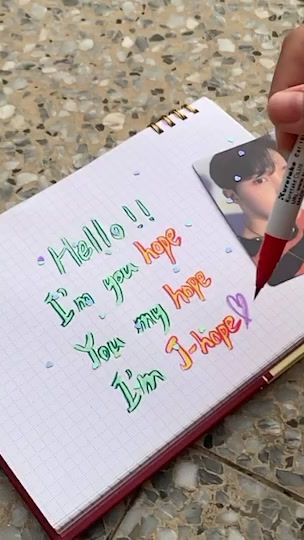 Hello!!
I'm you hope
You my hope
I'm J-hope